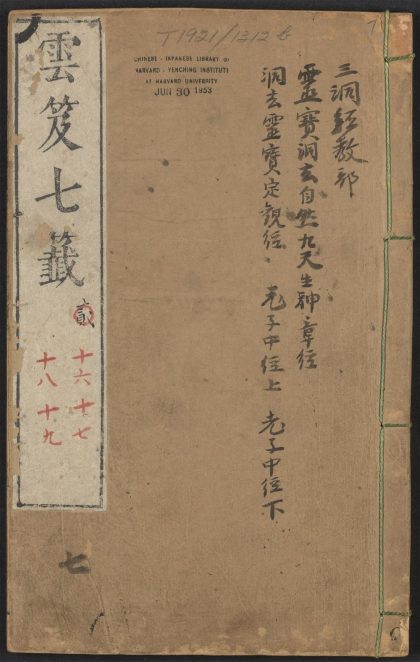 T1921/1312b
CHINESE - JAPANESE LIBRARY OF
HARVARD - YENCHING INSTITUTE
AT HARVARD UNIVERSITY
JUN 30 1953
三洞經教部
靈寳洞玄自然九天生神章經
洞玄靈寳定觀經 老子中經上 老子中經下
雲笈七籤
貳
十六 十七
十八 十九
七